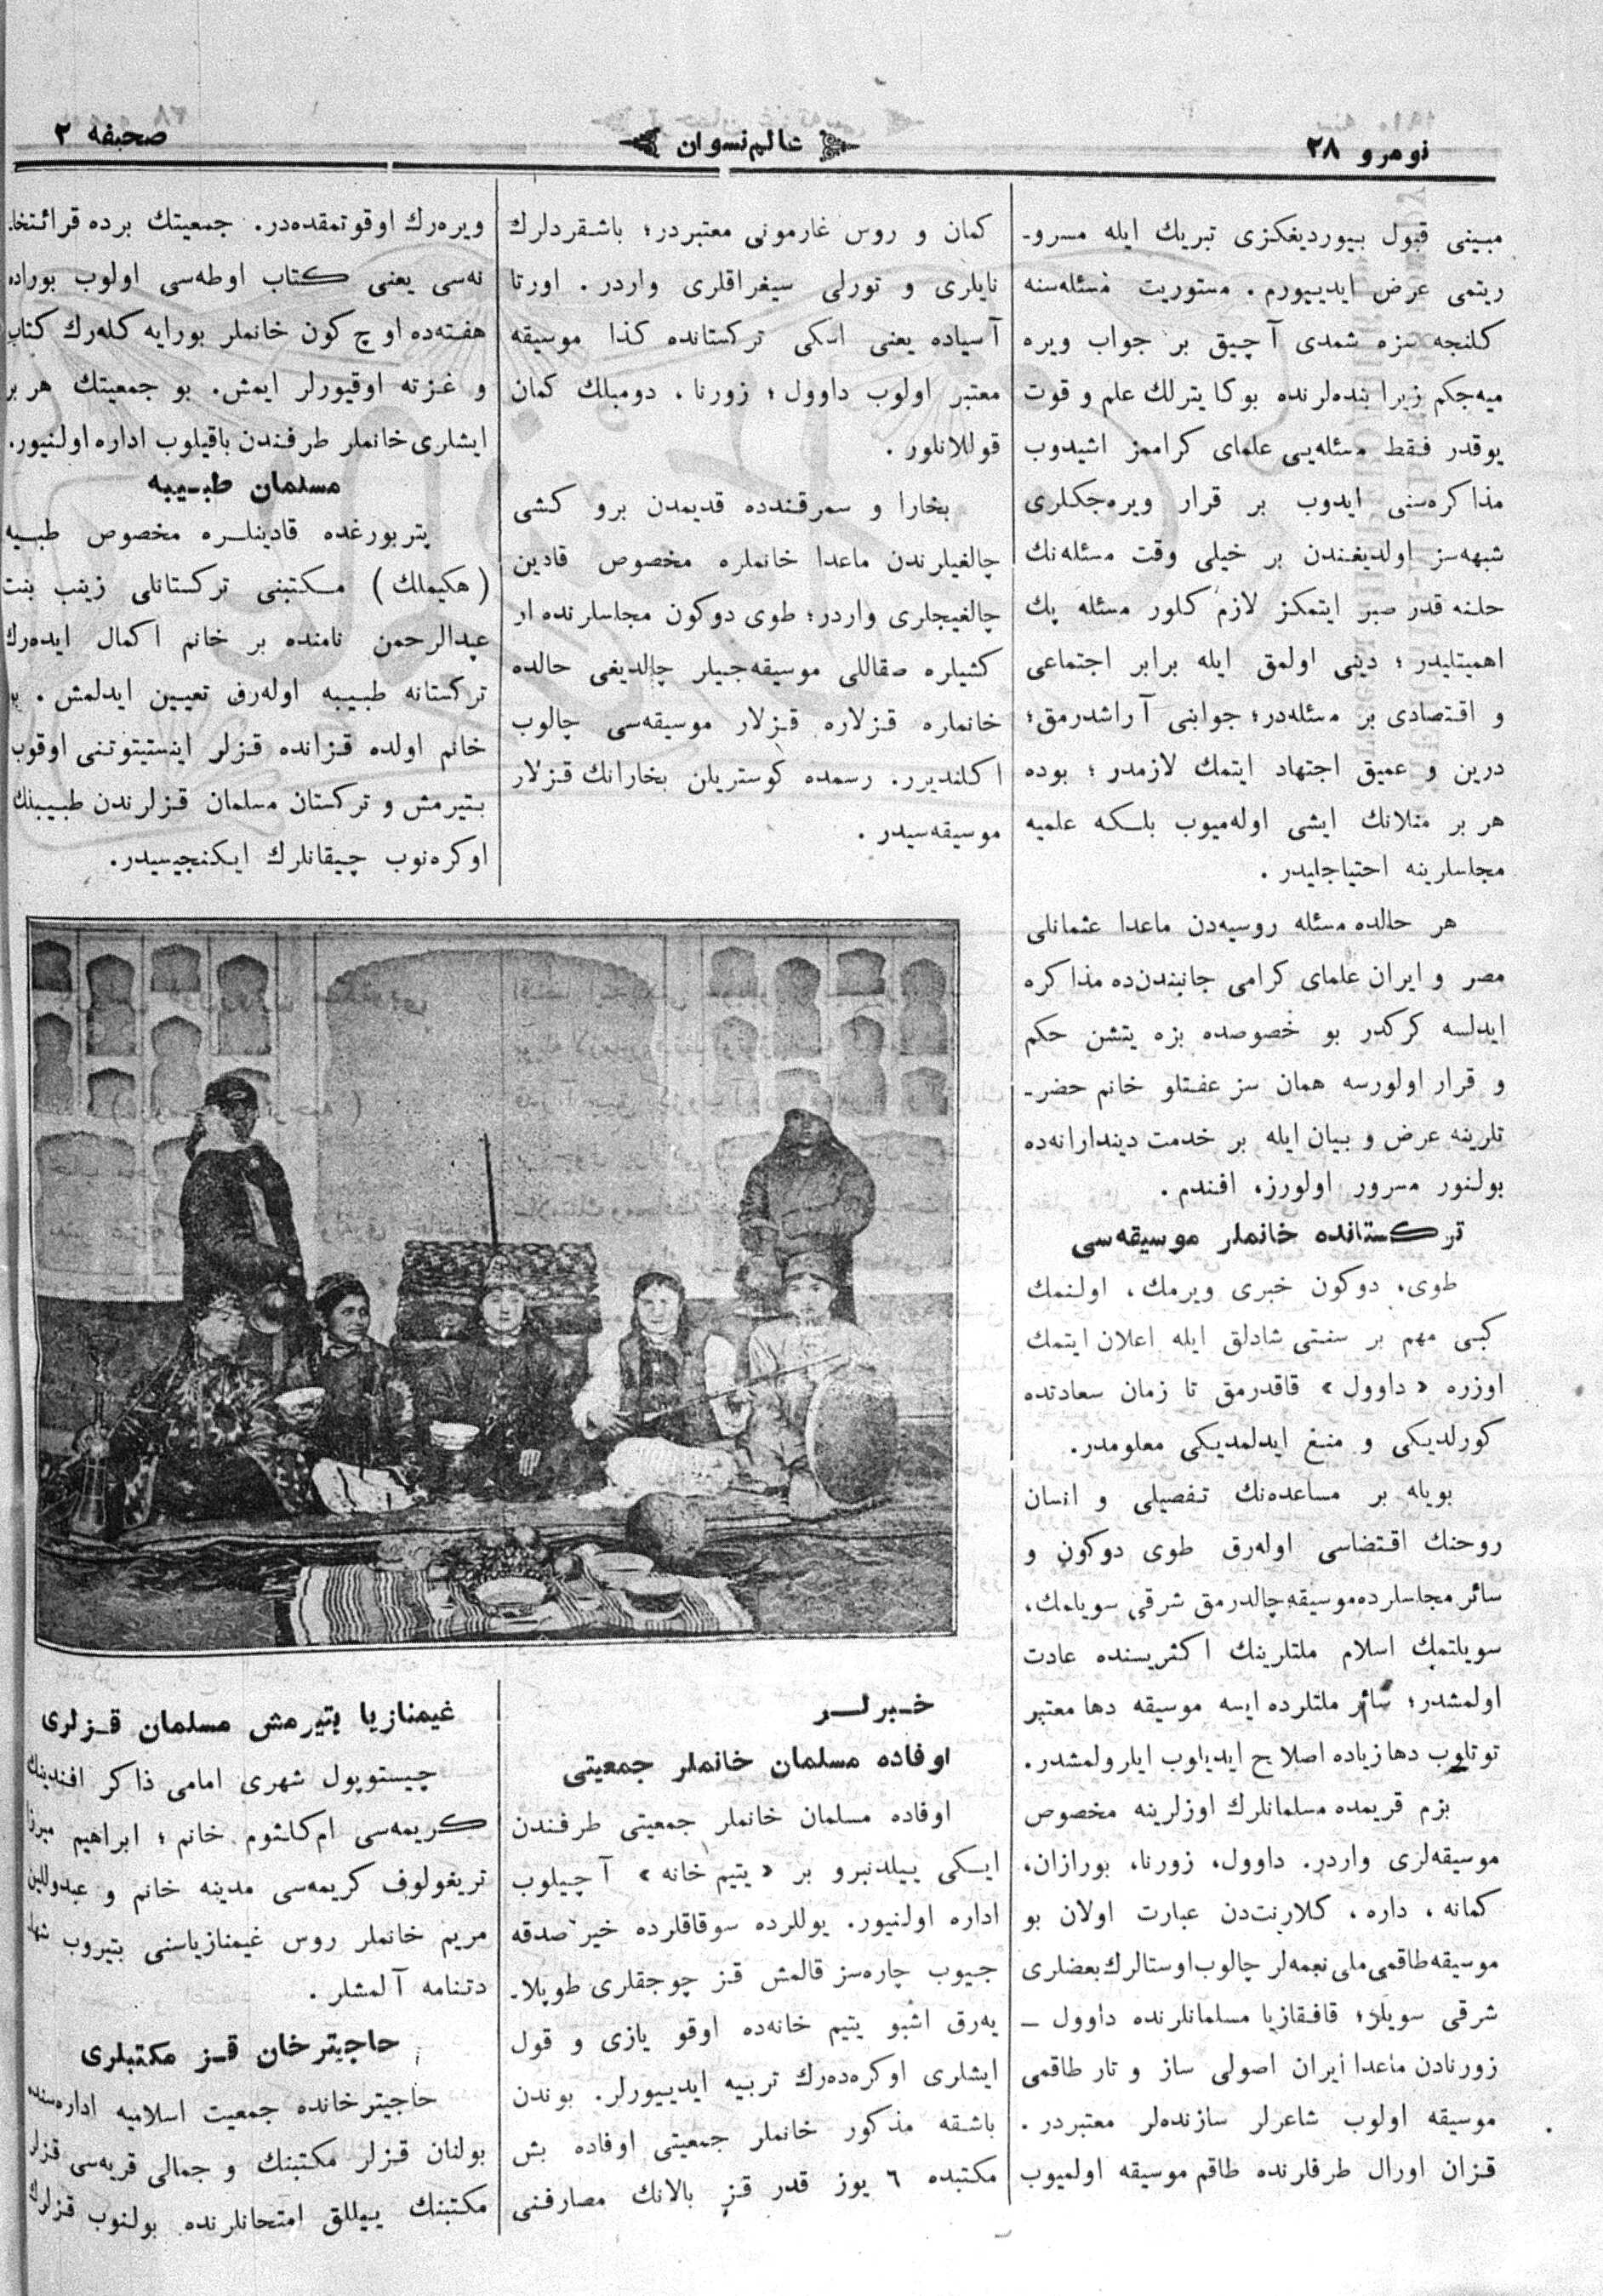 نومرو ٢٨
عالم نسوان
صحيفه ٢
مبينى قبول بيورديغكزى تبريك ايله مسرو-
ريتمى عرض ايديپورم. مستوريت مسئله‌سنه
كلنجه سزه شمدى آچيق بر جواب ويره
ميه‌جكم زيرا بنده‌لرنده بوكا يترلك علم و قوت
يوقدر فقط مسئله‌يى علماى كراممز اشيدوب
مذاكره‌سنى ايدوب بر قرار ويره‌جكلرى
شبهه‌سز اولديغندن بر خيلى وقت مسئله‌نك
حلنه قدر صبر ايتمكز لازم كلور مسئله پك
اهميتليدر ؛ دينى اولمق ايله برابر اجتماعى
و اقتصادى بر مسئله‌در؛ جوابنى آراشدرمق؛
درين و عميق اجتهاد ايتمك لازمدر ؛ بوده
هر بر منلانك ايشى اوله‌ميوب بلكه علميه
مجلسلرينه احتياجليدر .
هر حالده مسئله روسيه‌دن ماعدا عثمانلى
مصر و ايران علماى كرامى جانبندن‌ده مذاكره
ايدلسه كركدر بو خصوصده بزه يتشن حكم
و قرار اولورسه همان سز عفتلو خانم حضر-
تلرينه عرض و بيان ايله بر خدمت ديندارانه‌ده
بولنور مسرور اولورز، افندم .
تركستانده خانملر موسيقه‌سى
طوى، دوكون خبرى ويرمك، اولنمك
كبى مهم بر سنتى شادلق ايله اعلان ايتمك
اوزره «داوول» قاقدرمق تا زمان سعادتده
كورلديكى و منع ايدلمديكى معلومدر.
بويله بر مساعده‌نك تفصيلى و انسان
روحنك اقتضاسى اوله‌رق طوى دوكون و
سائر مجلسلرده موسيقه چالدرمق شرقى سويلمك،
سويلتمك اسلام ملتلرينك اكثريسنده عادت
اولمشدر؛ سائر ملتلرده ايسه موسيقه دها معتبر
توتلوب دها زياده اصلاح ايديلوب ايلرولمشدر.
بزم قريمده مسلمانلرك اوزلرينه مخصوص
موسيقه‌لرى واردر. داوول، زورنا، بورازان،
كمانه ، داره ، كلارنت‌دن عبارت اولان بو
موسيقه طاقمى ملى نغمه‌لر چالوب اوستالرك بعضلرى
شرقى سويلر؛ قافقازيا مسلمانلرنده داوول —
زورنادن ماعدا ايران اصولى ساز و تار طاقمى
موسيقه اولوب شاعرلر سازنده‌لر معتبردر .
قزان اورال طرفلرنده طاقم موسيقه اولميوب
كمان و روس غارمونى معتبردر؛ باشقردلرك
نايلرى و تورلى سيغراقلرى واردر . اورتا
آسياده يعنى اسكى تركستانده كذا موسيقه
معتبر اولوب داوول ؛ زورنا ، دومبلك كمان
قوللانلور .
بخارا و سمرقندده قديمدن برو كشى
چالغيلرندن ماعدا خانملره مخصوص قادين
چالغيجلرى واردر؛ طوى دوكون مجلسلرنده ار
كشيلره صقاللى موسيقه‌جيلر چالديغى حالده
خانملره قزلاره قزلار موسيقه‌سى چالوب
اكلنديرر. رسمده كوستريلن بخارانك قزلار
موسيقه‌سيدر .
ويره‌رك اوقوتمقده‌در. جمعيتك برده قرائتخا
نه‌سى يعنى كتاب اوطه‌سى اولوب بوراده
هفته‌ده اوچ كون خانملر بورايه كله‌رك كتاب
و غزته اوقيورلر ايمش. بو جمعيتك هر بر
ايشلرى خانملر طرفندن باقيلوب اداره اولنيور.
مسلمان طبيبه
پتربورغده قادينلره مخصوص طبيه
(هكيملك) مكتبنى تركستانلى زينب بنت
عبدالرحمن نامنده بر خانم اكمال ايده‌رك
تركستانه طبيبه اوله‌رق تعيين ايدلمش . بو
خانم اولده قزانده قزلر اينستيتوتنى اوقوب
بتيرمش و تركستان مسلمان قزلرندن طبيبنك
اوكره‌نوب چيقانلرك ايكنجيسيدر.
خبرلر
اوفاده مسلمان خانملر جمعيتى
اوفاده مسلمان خانملر جمعيتى طرفندن
ايكى ييلدنبرو بر «يتيم خانه» آچيلوب
اداره اولنيور. يوللرده سوقاقلرده خير صدقه
جيوب چاره‌سز قالمش قز چوجقلرى طوپلا-
يه‌رق اشبو يتيم خانه‌ده اوقو يازى و قول
ايشلرى اوكره‌ده‌رك تربيه ايدييورلر. بوندن
باشقه مذكور خانملر جمعيتى اوفاده بش
مكتبده ٦ يوز قدر قز بالانك مصارفنى
غيمنازيا بتيرمش مسلمان قزلرى
چيستوپول شهرى امامى ذاكر افندينك
كريمه‌سى ام‌كلثوم خانم ؛ ابراهيم ميرزا
تريغولوف كريمه‌سى مدينه خانم و
مريم خانملر روس غيمنازياسنى بتيروب شها
دتنامه آلمشلر .
حاجيترخان قز مكتبلرى
حاجيترخانده جمعيت اسلاميه اداره‌سنده
بولنان قزلر مكتبنك و جمالى قريه‌سى قزلر
مكتبنك ييللق امتحانلرنده بولنوب قزلرك